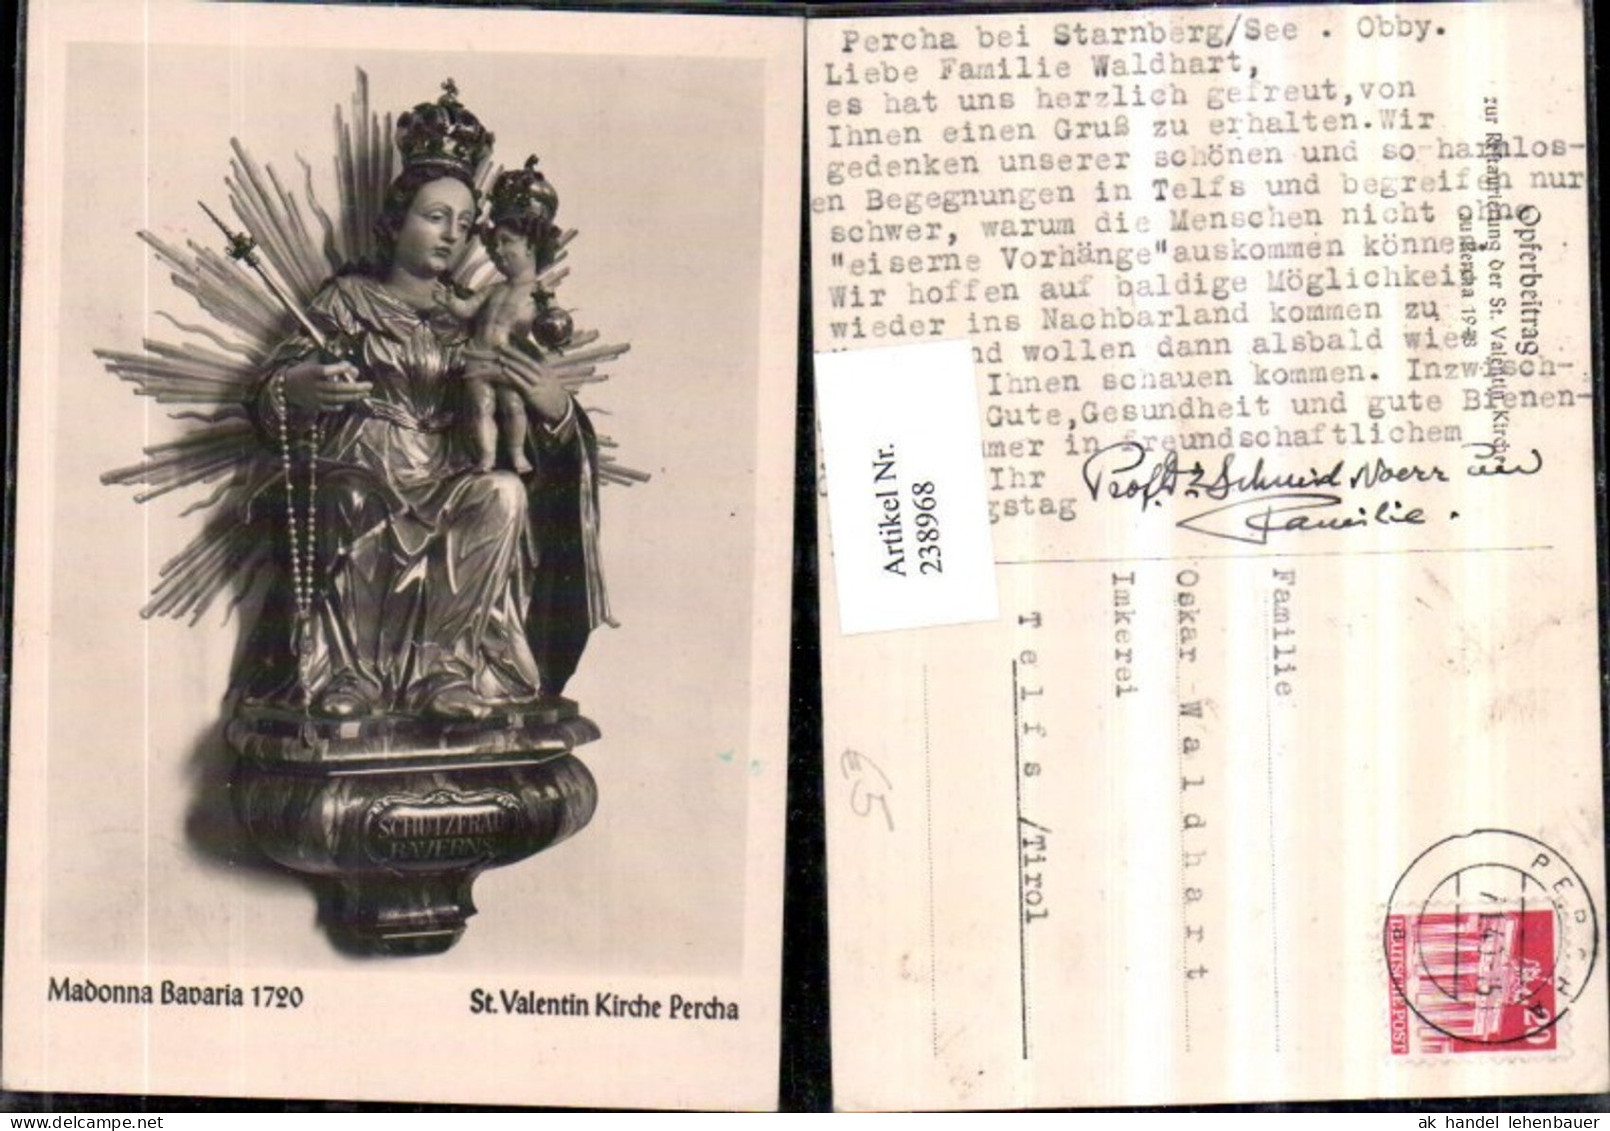 SCHUTZFRAU
BAYERNS
Madonna Bavaria 1720
St. Valentin Kirche Percha
Percha bei Starnberg/See . Obby.
Liebe Familie Waldhart,
es hat uns herzlich gefreut,von
Ihnen einen Gruß zu erhalten.Wir
gedenken unserer schönen und so harmlos-
en Begegnungen in Telfs und begreifen nur
schwer, warum die Menschen nicht ohne
"eiserne Vorhänge"auskommen können.
Wir hoffen auf baldige Möglichkeit
wieder ins Nachbarland kommen zu
nd wollen dann alsbald wie
Ihnen schauen kommen. Inzwisch-
Gute,Gesundheit und gute Bienen-
mmer in freundschaftlichem
Ihr
gstag
Prof. Dr Schmid Noerr
Familie.
Opferbeitrag
zur Restaurierung der St. Valentin Kirche
zu Percha 1948
Artikel Nr.
238968
Familie
Oskar Waldhart
Imkerei
Telfs /Tirol
DEUTSCHE POST
20
ak handel lehenbauer